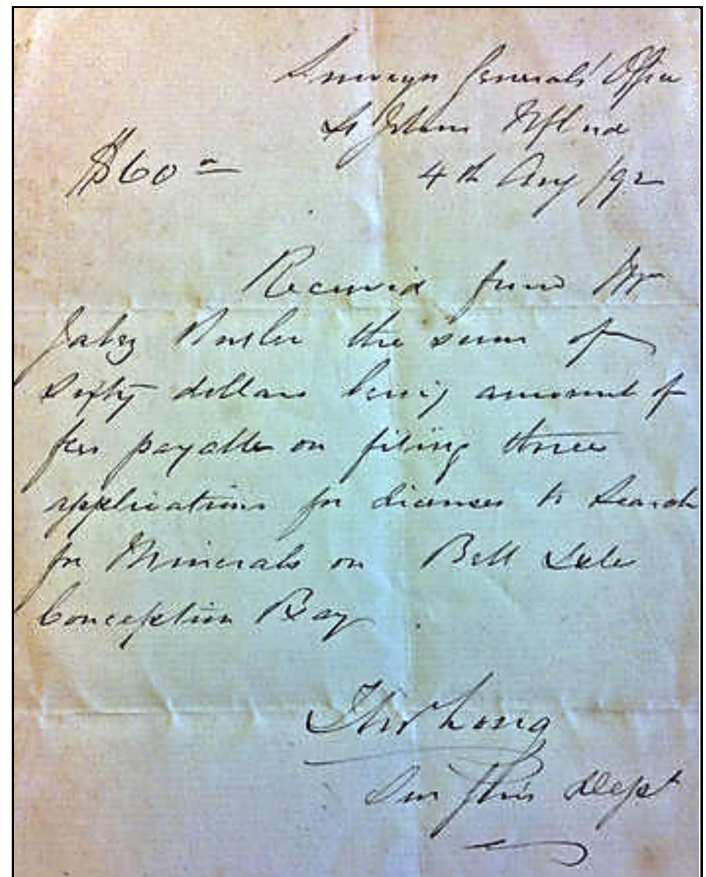 Surveyor Generals' Office
St Johns Nfland
$60 00
4th Aug /92
Received from Mr
Jabez Butler the sum of
Sixty dollars being amount of
fees payable on filing three
applications for licenses to Search
for Minerals on Bell Isle
Conception Bay
Long
Sur Genls Dept